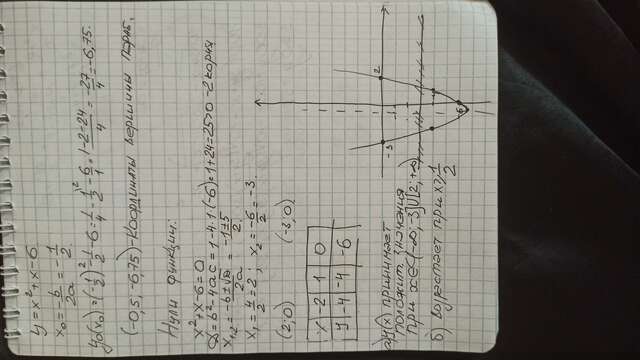 y = x² + x - 6
x₀ = -b/2a = -1/2
y₀(x₀) = (-1/2)² - 1/2 - 6 = 1/4 - 1/2 - 6/1 = 1-2-24/4 = -27/4 = -6,75.
(-0,5; -6,75) - координаты вершины параб.
Нули функции:
x² + x - 6 = 0
D = b² - 4ac = 1 - 4·1·(-6) = 1 + 24 = 25 > 0 - 2 корня
x₁,₂ = -b ± √D/2a = -1 ± 5/2.
x₁ = 4/2 = 2; x₂ = -6/2 = -3.
(2; 0) (-3; 0)
x -2 1 0
y -4 -4 -6
-3 2
-6
а) y(x) принимает
положит. значения
при x ∈ (-∞; -3] ∪ [2; +∞)
б) возрастает при x ≥ 1/2